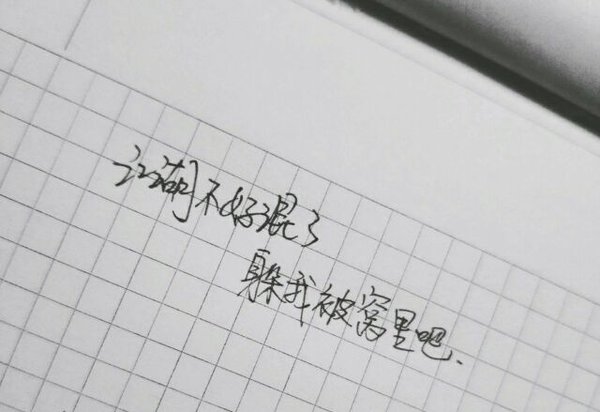 江湖不好混了
躲我被窝里吧.